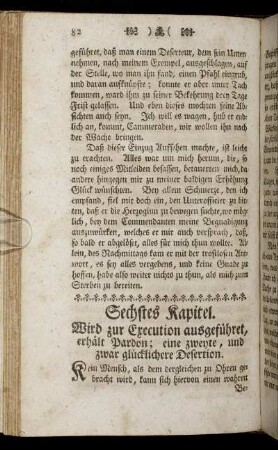 82
geführet, daß man einem Deserteur, dem sein Unter
nehmen, nach meinem Exempel, ausgeschlagen, auf
der Stelle, wo man ihn fand, einen Pfahl eingrub,
und daran aufknüpfte; konnte er aber unter Dach
kommen, ward ihm zu seiner Bekehrung drey Tage
Frist gelassen. Und eben dieses mochten seine Ab-
sichten auch seyn. Ich will es wagen, hub er end
lich an, kommt, Cammeraden, wir wollen ihn nach
der Wache bringen.
Daß dieser Einzug Aufsehen machte, ist leicht
zu erachten. Alles war um mich herum, die, so
noch einiges Mitleiden besaßen, betaurten mich, da
andere hingegen mir zu meiner baldigen Erhöhung
Glück wünschten. Bey allem Schmerze, den ich
empfand, fiel mir doch ein, den Unterofficier zu bit
ten, daß er die Herzogin zu bewegen suchte, wo mög
lich, bey dem Commendanten meine Begnadigung
auszuwürken, welches er mir auch versprach, daß,
so bald er abgelöset, alles für mich thun wollte. Al
lein, des Nachmittags kam er mit der trostlosen Ant
wort, es sey alles vergebens, und keine Gnade zu
hoffen, habe also weiter nichts zu thun, als mich zum
Sterben zu bereiten.
Sechstes Kapitel.
Wird zur Execution ausgeführet,
erhält Pardon; eine zweyte, und
zwar glücklichere Desertion.
Kein Mensch, als dem dergleichen zu Ohren ge
bracht wird, kann sich hiervon einen wahren
Be-